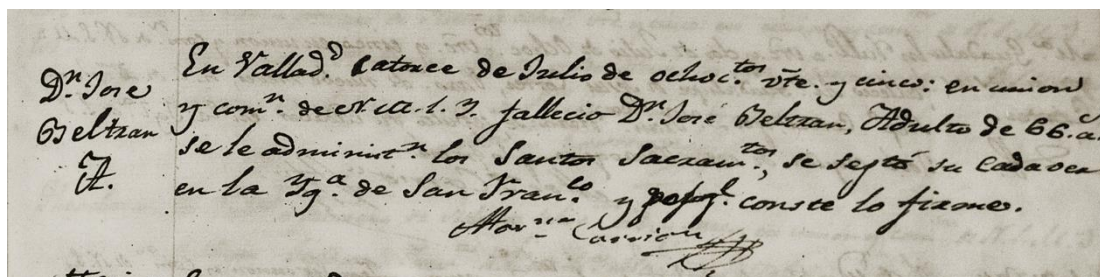 Dn. Jose
Beltran
A.
En Vallad.d catorce de Julio de ochoc.tos vte. y cinco: en union
y com.n de N. M. S. Y. fallecio Dn. José Beltran, Adulto de 66. a.s
se le administ.n los Santos Sacram.tos, se septó su cadaver
en la Yg.a de San Fran.co y conste lo firmo.
Carrion